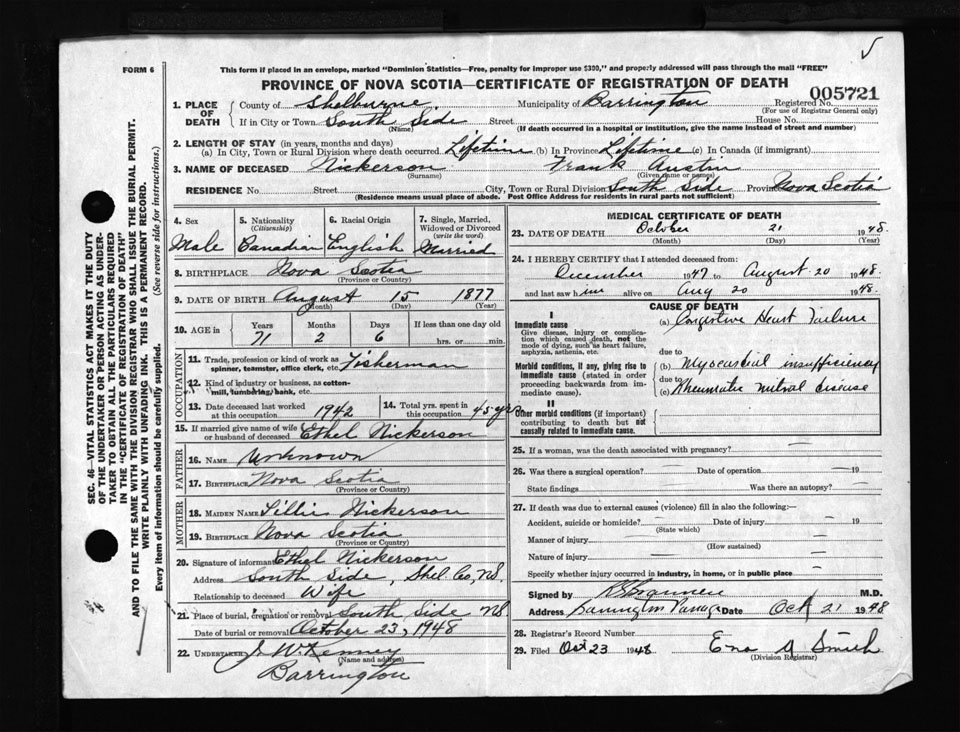 FORM 6
This form if placed in an envelope, marked "Dominion Statistics—Free, penalty for improper use $300," and properly addressed will pass through the mail "FREE"
PROVINCE OF NOVA SCOTIA—CERTIFICATE OF REGISTRATION OF DEATH
005721
1. PLACE OF DEATH
County of Shelburne Municipality of Barrington Registered No.
(For use of Registrar General only)
If in City or Town South Side Street House No.
(Name) (If death occurred in a hospital or institution, give the name instead of street and number)
2. LENGTH OF STAY (in years, months and days)
(a) In City, Town or Rural Division where death occurred Lifetime (b) In Province Lifetime (c) In Canada (if immigrant)
3. NAME OF DECEASED Nickerson Frank Austin
(Surname) (Given name or names)
RESIDENCE No. Street City, Town or Rural Division South Side Province Nova Scotia
(Residence means usual place of abode. Post Office Address for residents in rural parts not sufficient)
4. Sex
Male
5. Nationality
(Citizenship)
Canadian
6. Racial Origin
English
7. Single, Married, Widowed or Divorced
(write the word)
Married
8. BIRTHPLACE Nova Scotia
(Province or Country)
9. DATE OF BIRTH August 15 1877
(Month) (Day) (Year)
10. AGE in Years Months Days If less than one day old
71 2 6 hrs. or min.
OCCUPATION
11. Trade, profession or kind of work as Fisherman
spinner, teamster, office clerk, etc.
12. Kind of industry or business, as cotton-
mill, lumbering, bank, etc.
13. Date deceased last worked
at this occupation 1942
14. Total yrs. spent
in this occupation 45 yrs
15. If married give name of wife
or husband of deceased Ethel Nickerson
FATHER
16. NAME Unknown
17. BIRTHPLACE Nova Scotia
(Province or Country)
MOTHER
18. MAIDEN NAME Lillie Nickerson
19. BIRTHPLACE Nova Scotia
(Province or Country)
20. Signature of informant Ethel Nickerson
Address South Side, Shel. Co, N.S.
Relationship to deceased Wife
21. Place of burial, cremation or removal South Side NS
Date of burial or removal October 23, 1948
22. UNDERTAKER J. W. Kenney
(Name and address)
Barrington
MEDICAL CERTIFICATE OF DEATH
23. DATE OF DEATH October 21 1948.
(Month) (Day) (Year)
24. I HEREBY CERTIFY that I attended deceased from:
December 1947 to August 20 1948.
and last saw him alive on Aug 20 1948.
CAUSE OF DEATH
I
Immediate cause
Give disease, injury or complication which caused death, not the mode of dying, such as heart failure, asphyxia, asthenia, etc.
(a) Congestive Heart Failure
due to
Morbid conditions, if any, giving rise to immediate cause (stated in order proceeding backwards from immediate cause)
(b) Myocardial insufficiency
due to
(c) Rheumatic mitral disease
II
Other morbid conditions (if important) contributing to death but not causally related to immediate cause.
25. If a woman, was the death associated with pregnancy?
26. Was there a surgical operation? Date of operation 19
State findings Was there an autopsy?
27. If death was due to external causes (violence) fill in also the following:—
Accident, suicide or homicide? Date of injury 19
(State which)
Manner of injury
(How sustained)
Nature of injury
Specify whether injury occurred in industry, in home, or in public place
Signed by M.D.
Address Barrington Passage Date Oct 21 1948
28. Registrar's Record Number
29. Filed Oct 23 1948 Ena A Smith
(Division Registrar)
SEC. 46—VITAL STATISTICS ACT MAKES IT THE DUTY
OF THE UNDERTAKER OR PERSON ACTING AS UNDER-
TAKER TO OBTAIN ALL THE PARTICULARS REQUIRED
IN THE "CERTIFICATE OF REGISTRATION OF DEATH"
AND TO FILE THE SAME WITH THE DIVISION REGISTRAR WHO SHALL ISSUE THE BURIAL PERMIT.
WRITE PLAINLY WITH UNFADING INK. THIS IS A PERMANENT RECORD.
Every item of information should be carefully supplied. (See reverse side for instructions.)